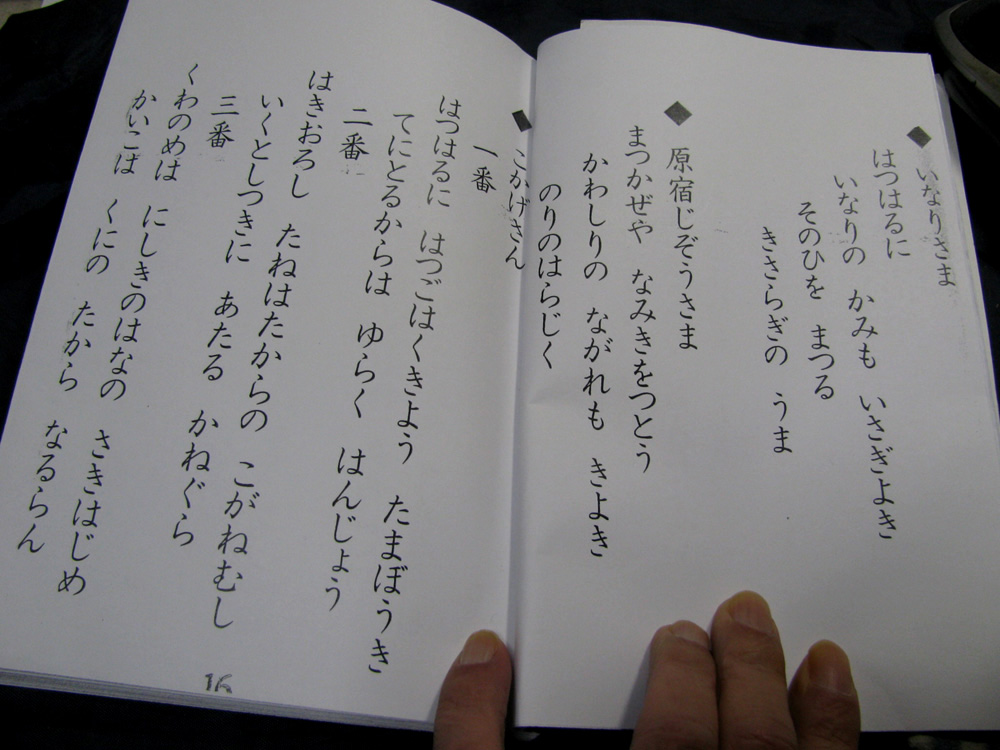 ◆ いなりさま
はつはるに
いなりの かみも いさぎよき
そのひを まつる
きさらぎの うま
◆ 原宿じぞうさま
まつかぜや なみきをつとう
かわしりの ながれも きよき
のりのはらじく
◆ こかげさん
一番
はつはるに はつごはくきよう たまぼうき
てにとるからは ゆらく はんじょう
二番
はきおろし たねはたからの こがねむし
いくとしつきに あたる かねぐら
三番
くわのめは にしきのはなの さきはじめ
かいこば くにの たから なるらん
16